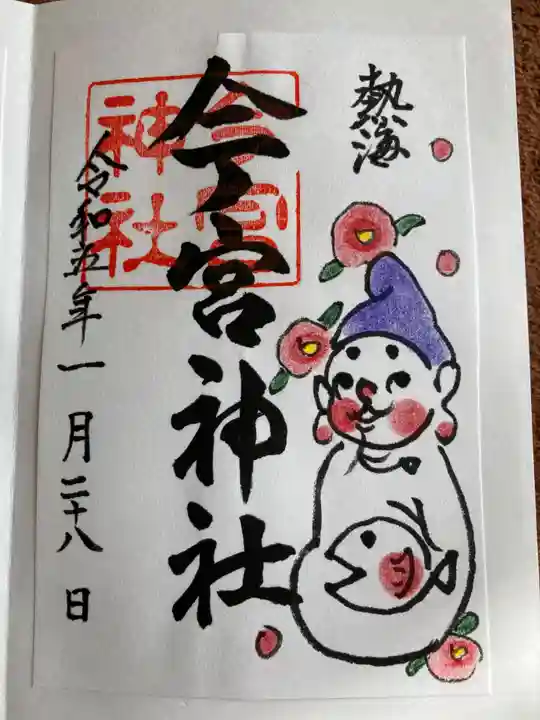 熱海
今宮神社
今宮
神社
令和五年一月二十八日